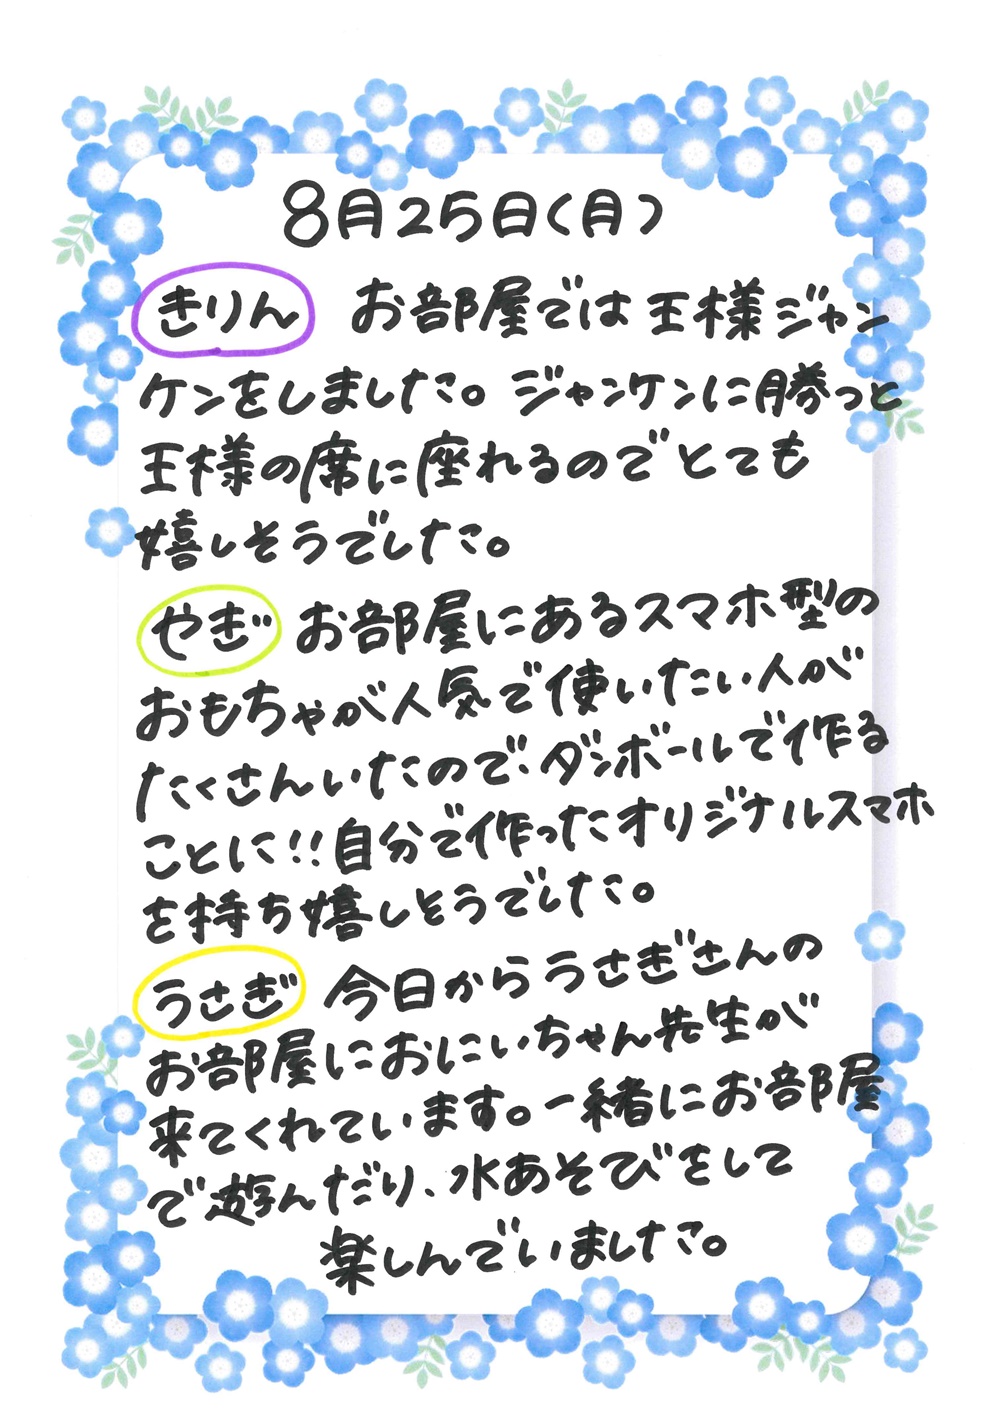 8月25日(月)
きりん お部屋では王様ジャン
ケンをしました。ジャンケンに勝つと
王様の席に座れるのでとても
嬉しそうでした。
やぎ お部屋にあるスマホ型の
おもちゃが人気で使いたい人が
たくさんいたので、ダンボールで作る
ことに!!自分で作ったオリジナルスマホ
を持ち嬉しそうでした。
うさぎ 今日からうさぎさんの
お部屋におにいちゃん先生が
来てくれています。一緒にお部屋
で遊んだり、水あそびをして
楽しんでいました。